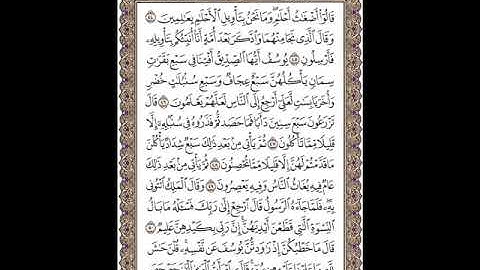 قَالُوٓا۟ أَضْغَٰثُ أَحْلَٰمٍ ۖ وَمَا نَحْنُ بِتَأْوِيلِ ٱلْأَحْلَٰمِ بِعَٰلِمِينَ ٤٤
وَقَالَ ٱلَّذِى نَجَا مِنْهُمَا وَٱدَّكَرَ بَعْدَ أُمَّةٍ أَنَا۠ أُنَبِّئُكُم بِتَأْوِيلِهِۦ
فَأَرْسِلُونِ ٤٥ يُوسُفُ أَيُّهَا ٱلصِّدِّيقُ أَفْتِنَا فِى سَبْعِ بَقَرَٰتٍ
سِمَانٍ يَأْكُلُهُنَّ سَبْعٌ عِجَافٌ وَسَبْعِ سُنۢبُلَٰتٍ خُضْرٍ
وَأُخَرَ يَابِسَٰتٍ لَّعَلِّىٓ أَرْجِعُ إِلَى ٱلنَّاسِ لَعَلَّهُمْ يَعْلَمُونَ ٤٦ قَالَ
تَزْرَعُونَ سَبْعَ سِنِينَ دَأَبًا فَمَا حَصَدتُّمْ فَذَرُوهُ فِى سُنۢبُلِهِۦٓ إِلَّا
قَلِيلًا مِّمَّا تَأْكُلُونَ ٤٧ ثُمَّ يَأْتِى مِنۢ بَعْدِ ذَٰلِكَ سَبْعٌ شِدَادٌ يَأْكُلْنَ
مَا قَدَّمْتُمْ لَهُنَّ إِلَّا قَلِيلًا مِّمَّا تُحْصِنُونَ ٤٨ ثُمَّ يَأْتِى مِنۢ بَعْدِ ذَٰلِكَ
عَامٌ فِيهِ يُغَاثُ ٱلنَّاسُ وَفِيهِ يَعْصِرُونَ ٤٩ وَقَالَ ٱلْمَلِكُ ٱئْتُونِى
بِهِۦ ۖ فَلَمَّا جَآءَهُ ٱلرَّسُولُ قَالَ ٱرْجِعْ إِلَىٰ رَبِّكَ فَسْـَٔلْهُ مَا بَالُ
ٱلنِّسْوَةِ ٱلَّٰتِى قَطَّعْنَ أَيْدِيَهُنَّ ۚ إِنَّ رَبِّى بِكَيْدِهِنَّ عَلِيمٌ ٥٠
قَالَ مَا خَطْبُكُنَّ إِذْ رَٰوَدتُّنَّ يُوسُفَ عَن نَّفْسِهِۦ ۚ قُلْنَ حَٰشَ